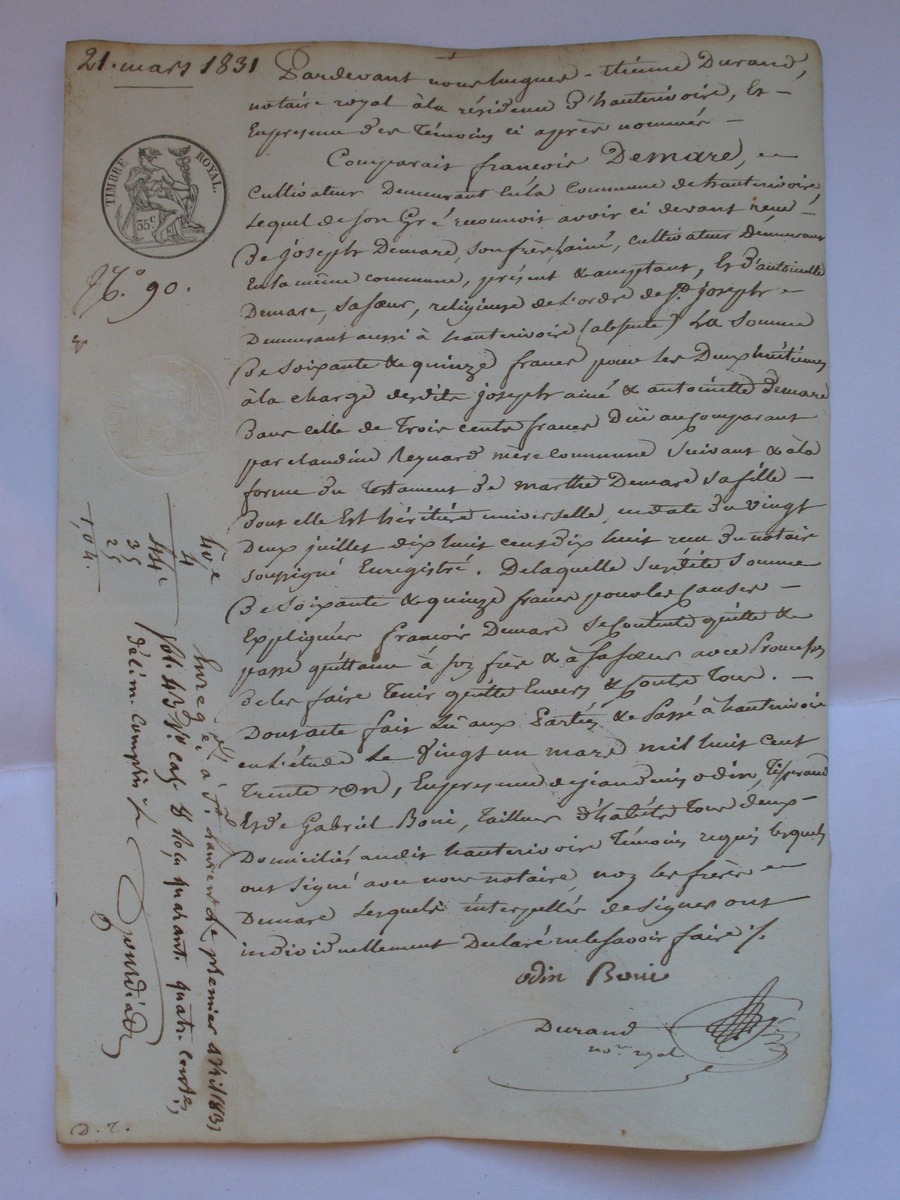 21. mars 1831
Pardevant nous hugues-étienne Durand,
notaire royal à la résidence d'hauterivoire, Et
En présence des Témoins ci après nommés
Comparait françois Demare,
Cultivateur Demeurant En la Commune de hauterivoire
Lequel de son Gré reconnoit avoir ci devant reçu
De joseph Demare, son frère ainé, cultivateur Demeurant
En la même commune, présent & acceptant, Et d'antoinette
Demare, sa sœur, religieuse de l'ordre de St. joseph
Demeurant aussi à hauterivoire (absente) La Somme
De soixante & quinze francs pour les Deux huitièmes
à la charge desdits joseph ainé & antoinette Demare
Dans celle de Trois cents francs Due au Comparant
par claudine Reynard mère commune suivant & à la
forme du Testament de marthe Demare sa fille
Dont elle Est héritière universelle, en date du vingt
Deux juillet dix huit cent dix huit reçu du notaire
soussigné Enregistré. De laquelle susdite somme
De soixante & quinze francs pour les causes
Expliquées françois Demare se contente quitte &
passe quittance à son frère & à sa sœur avec Promesse
de les faire Tenir quitte Envers & contre Tous.
Dont acte fait Lu aux Parties & Passé à hauterivoire
en l'étude Le Vingt un mars mil huit cent
Trente Un, En présence de jean denis odin, Tisserand
Et de Gabriel Boni, Tailleur d'habits Tous deux
Domiciliés audit hauterivoire Témoins requis lesquels
ont signé avec nous notaire non les frères
Demare lesquels interpellés de signer ont
individuellement Declaré ne le savoir faire ./.
odin Boni
Durand
nore. royal
TIMBRE ROYAL.
35 c
No. 90.
40 c
4
44 c
35
25
1,04.
Enregé. à St. Laurent le premier avril 1831
folio 43 Vo. cas. 8 Reçu quarante quatre centes,
décime compris
D. r.